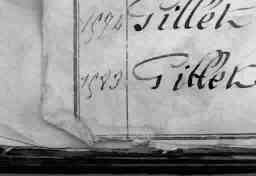 1594 Pillet
1583 Pillet